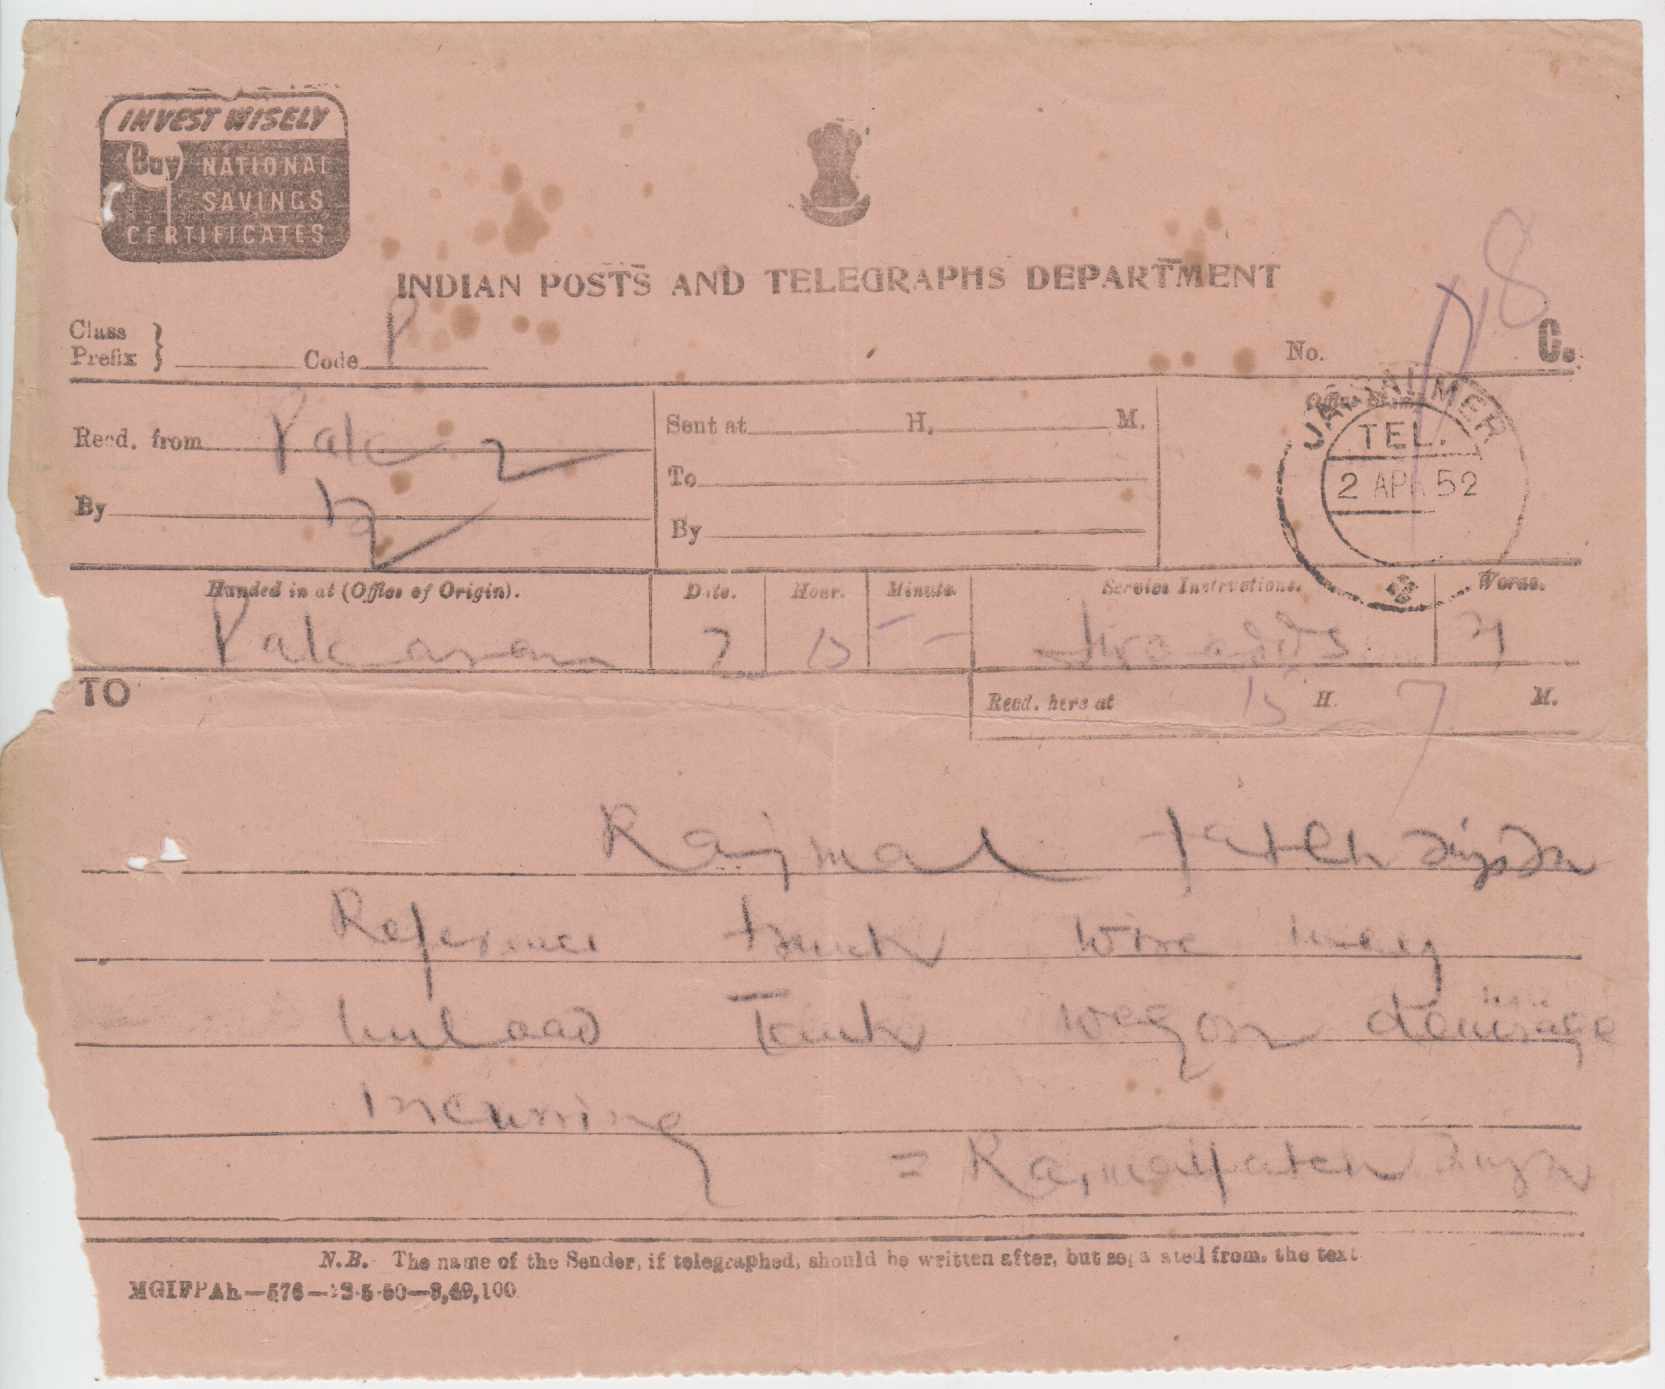 INVEST WISELY
Buy NATIONAL
SAVINGS
CERTIFICATES
INDIAN POSTS AND TELEGRAPHS DEPARTMENT
Class
Prefix } Code P
No. 8
C.
Recd. from Pak
Sent at H. M.
To
By
By
JAISALMER
TEL.
2 APR 52
Handed in at (Office of Origin). Date. Hour. Minute. Service Instructions. Words.
Pakaran 2 15 -- two adds 21
TO
Recd. here at 15 H. 7 M.
Rajmal fateh singh
Reference truck wire
unload Truck wegon demurage
incurring
= Rajmalfateh singh
N.B. The name of the Sender, if telegraphed, should be written after, but separated from, the text
MGIFPAh.—576—13-5-50—3,49,100